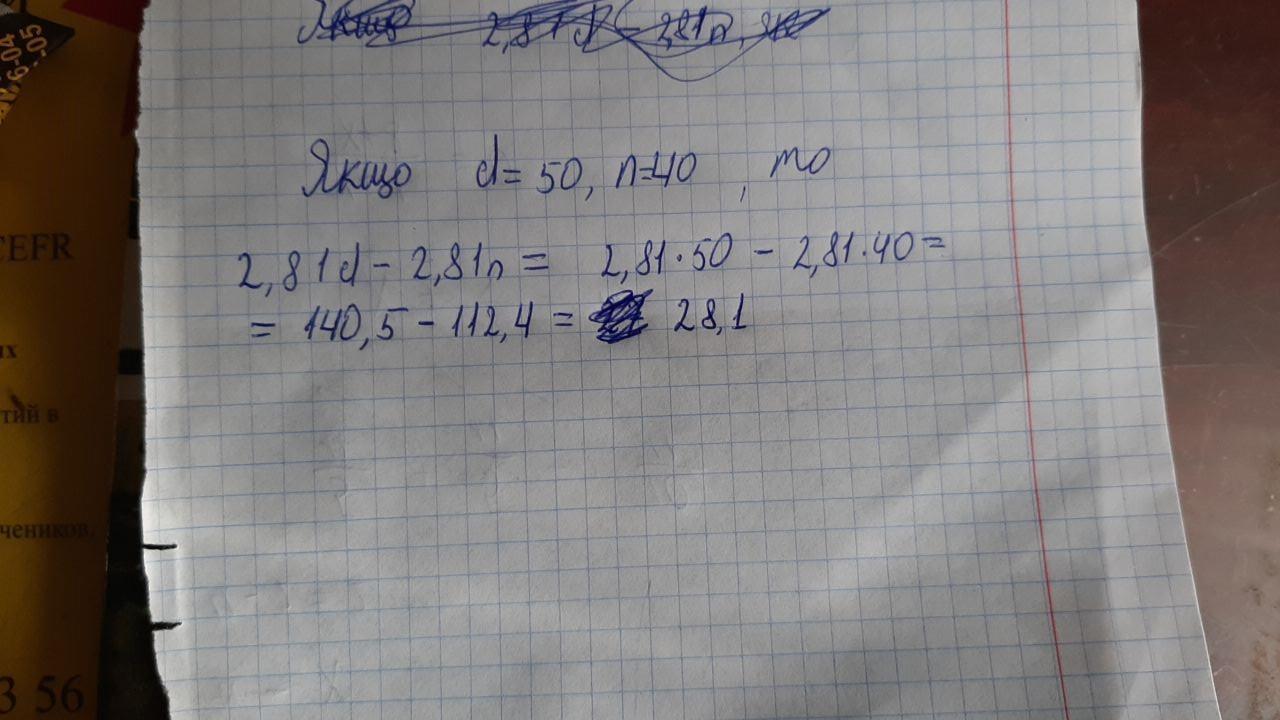 2,81d - 2,81n,
Якщо d = 50, n=40 , то
2,81d - 2,81n = 2,81·50 - 2,81·40 =
= 140,5 - 112,4 = 28,1
6-04
-05
CEFR
их
тий в
чеников.
3 56